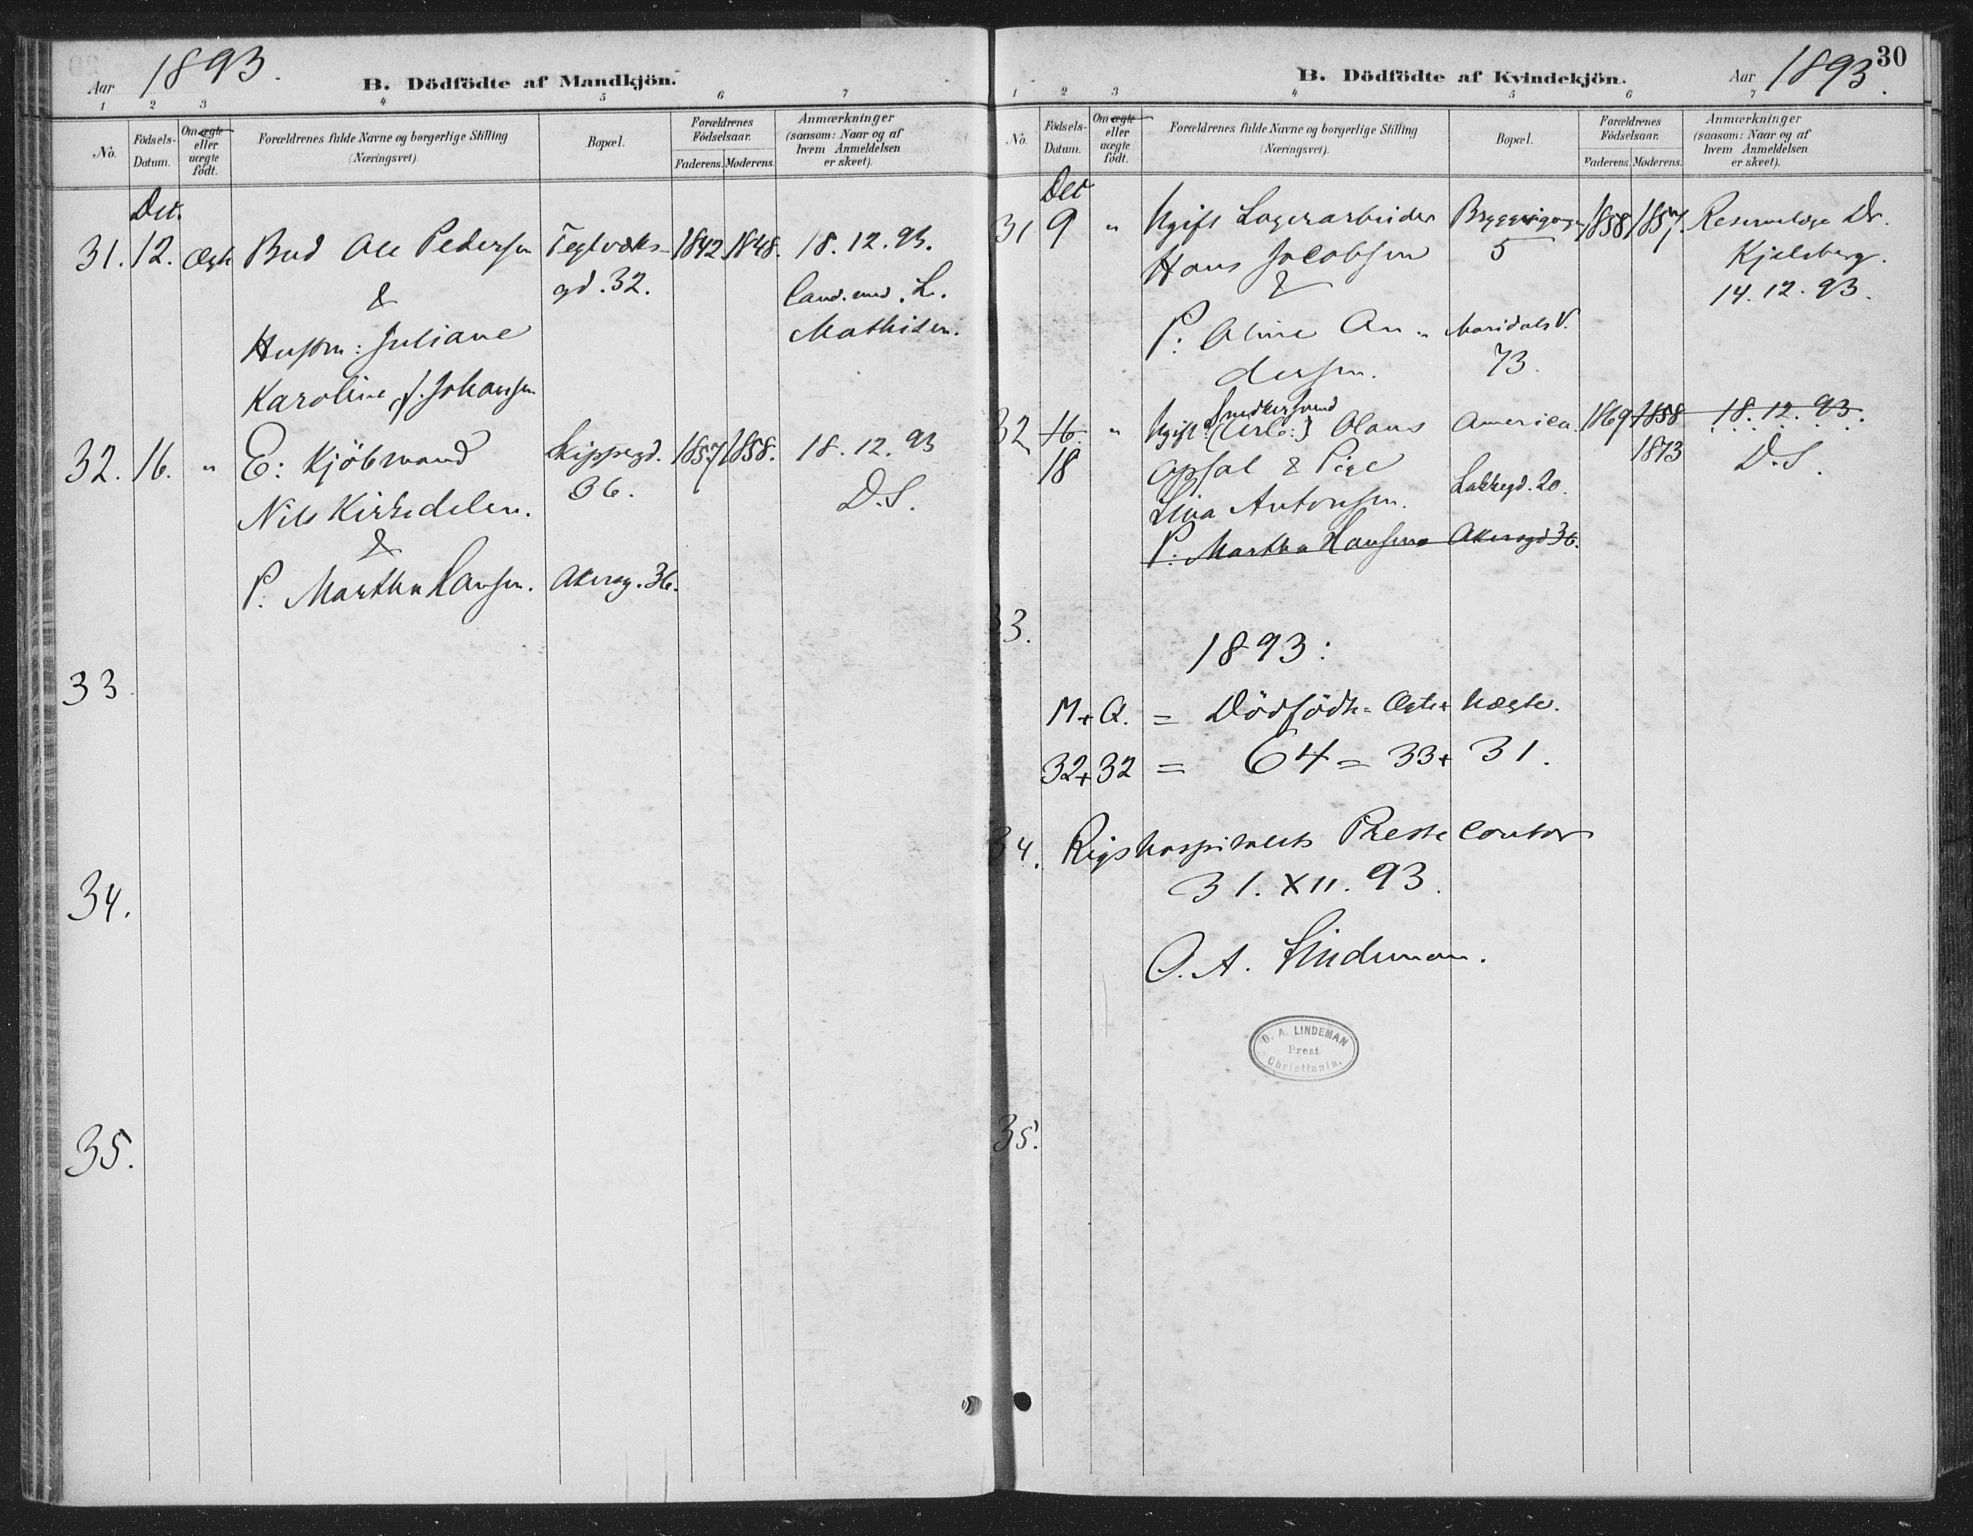 Aar 1893.
B. Dödfödte af Mandkjön.
1 2 3 4 5 6 7
No.
Födsels-Datum.
Om ægte eller uægte födt.
Forældrenes fulde Navne og borgerlige Stilling
(Næringsvei).
Bopæl.
Forældrenes Födselsaar.
Faderens. Moderens.
Anmærkninger
(saasom: Naar og af
hvem Anmeldelsen
er skeet).
Dec.
31. 12. Ægte Bud Ole Pedersen Teglværks- 1842. 1848. 18. 12. 93.
& gd. 32. Cand. med. L.
Hustru: Juliane Mathisen.
Karoline f. Johansen
32. 16. " E: Kjöbmand Skippegd. 1857 1858. 18. 12. 93
Nils Kirkedelen. 36. D.S.
&
P. Martha Hansen. Akersg. 36.
33
34.
35.
30
B. Dödfödte af Kvindekjön.
Aar 1893.
1 2 3 4 5 6 7
No.
Födsels-Datum.
Om ægte eller uægte födt.
Forældrenes fulde Navne og borgerlige Stilling
(Næringsvei).
Bopæl.
Forældrenes Födselsaar.
Faderens. Moderens.
Anmærkninger
(saasom: Naar og af
hvem Anmeldelsen
er skeet).
Dec
31 9 " Ugift Lagerarbeider 1858 1857. Reservelæge Dr.
Hans Jacobsen 5 Kjelsberg.
& 14. 12. 93.
P: Aline An- Maridals V.
dersen. 73.
Snedkersvend
32 16. " Ugift Olaus America 1869 1858 18. 12. 93.
18 Opsal & Pige 1873 D.S.
Lina Antonsen. Lakkegd. 20.
P: Martha Hansen Akersgd 36.
33.
1893:
M + Q. = Dödfödte = Ægte + Uægte.
32 + 32 = 64 = 33 + 31.
34. Rigshospitalets Prestecontor
31. XII. 93.
O. A. Lindeman.
O. A. LINDEMAN
Prest
Christiania.
35.